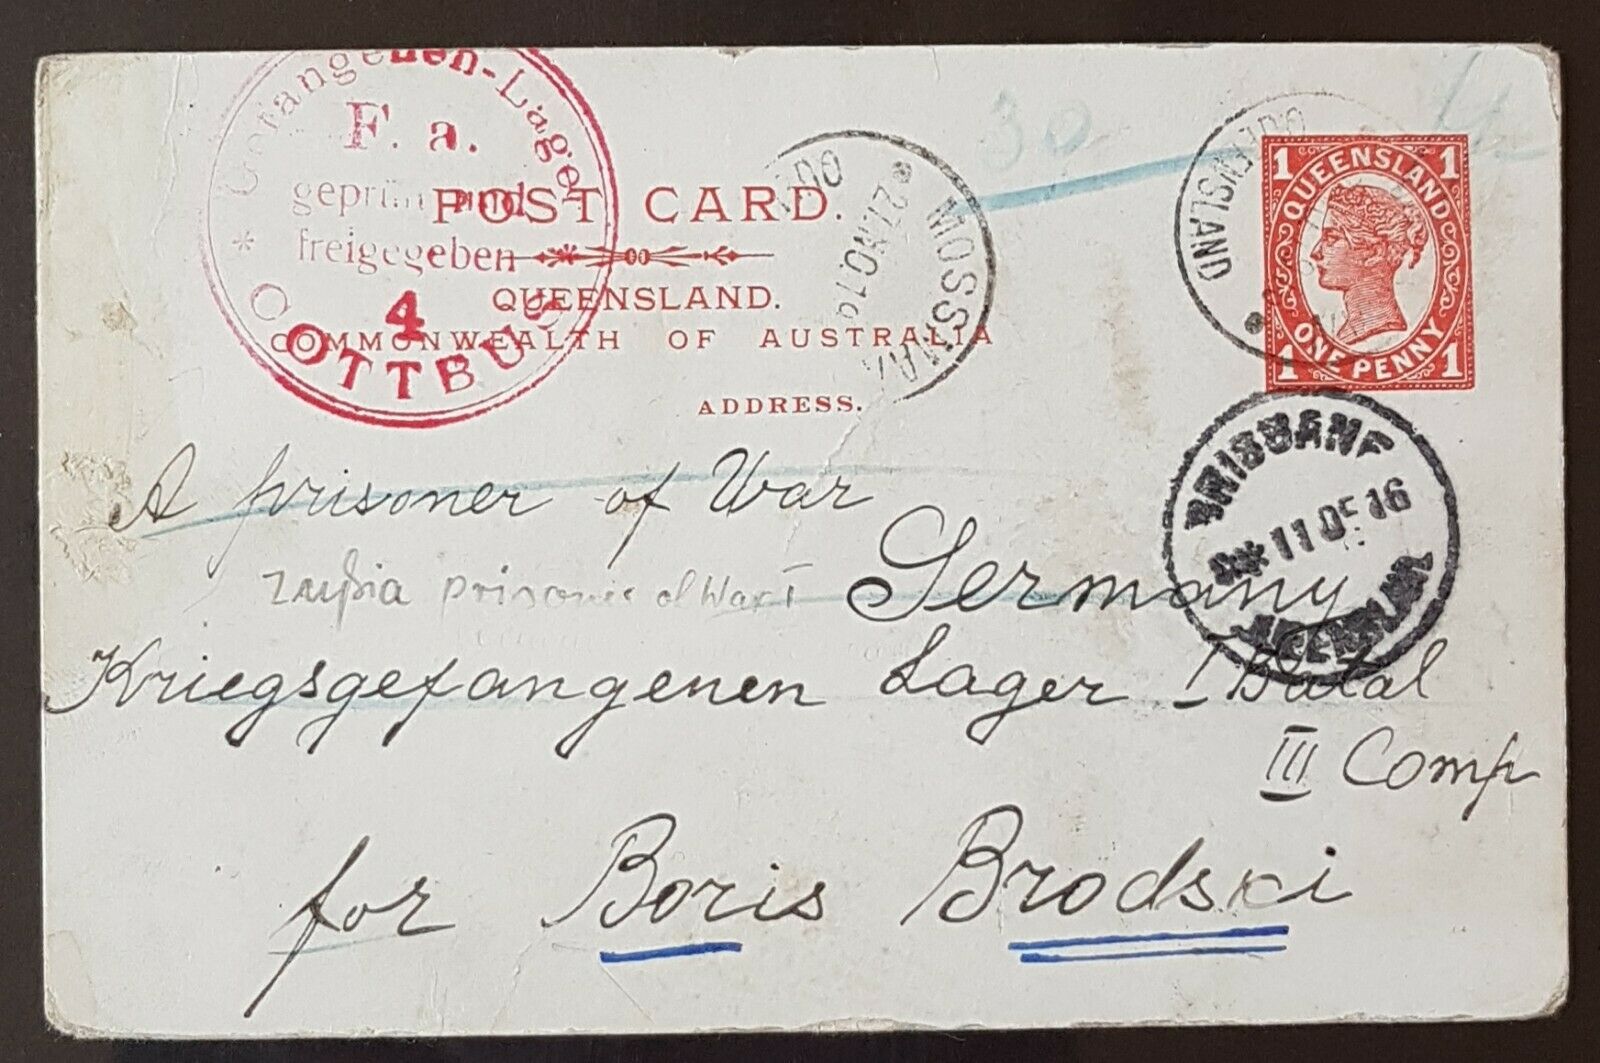 Gefangenen-Lager
F. a.
geprüft und
freigegeben
4
COTTBUS
POST CARD.
QUEENSLAND.
COMMONWEALTH OF AUSTRALIA
ADDRESS.
MOSSMAN
27.NO.16
QUEENSLAND
30
QUEENSLAND
1 1
ONE PENNY
1 1
BRISBANE
11 DE 16
QUEENSLAND
A prisoner of War
prisonier of War I
Germany
Kriegsgefangenen Lager I Batal
III Comp
for Boris Brodski